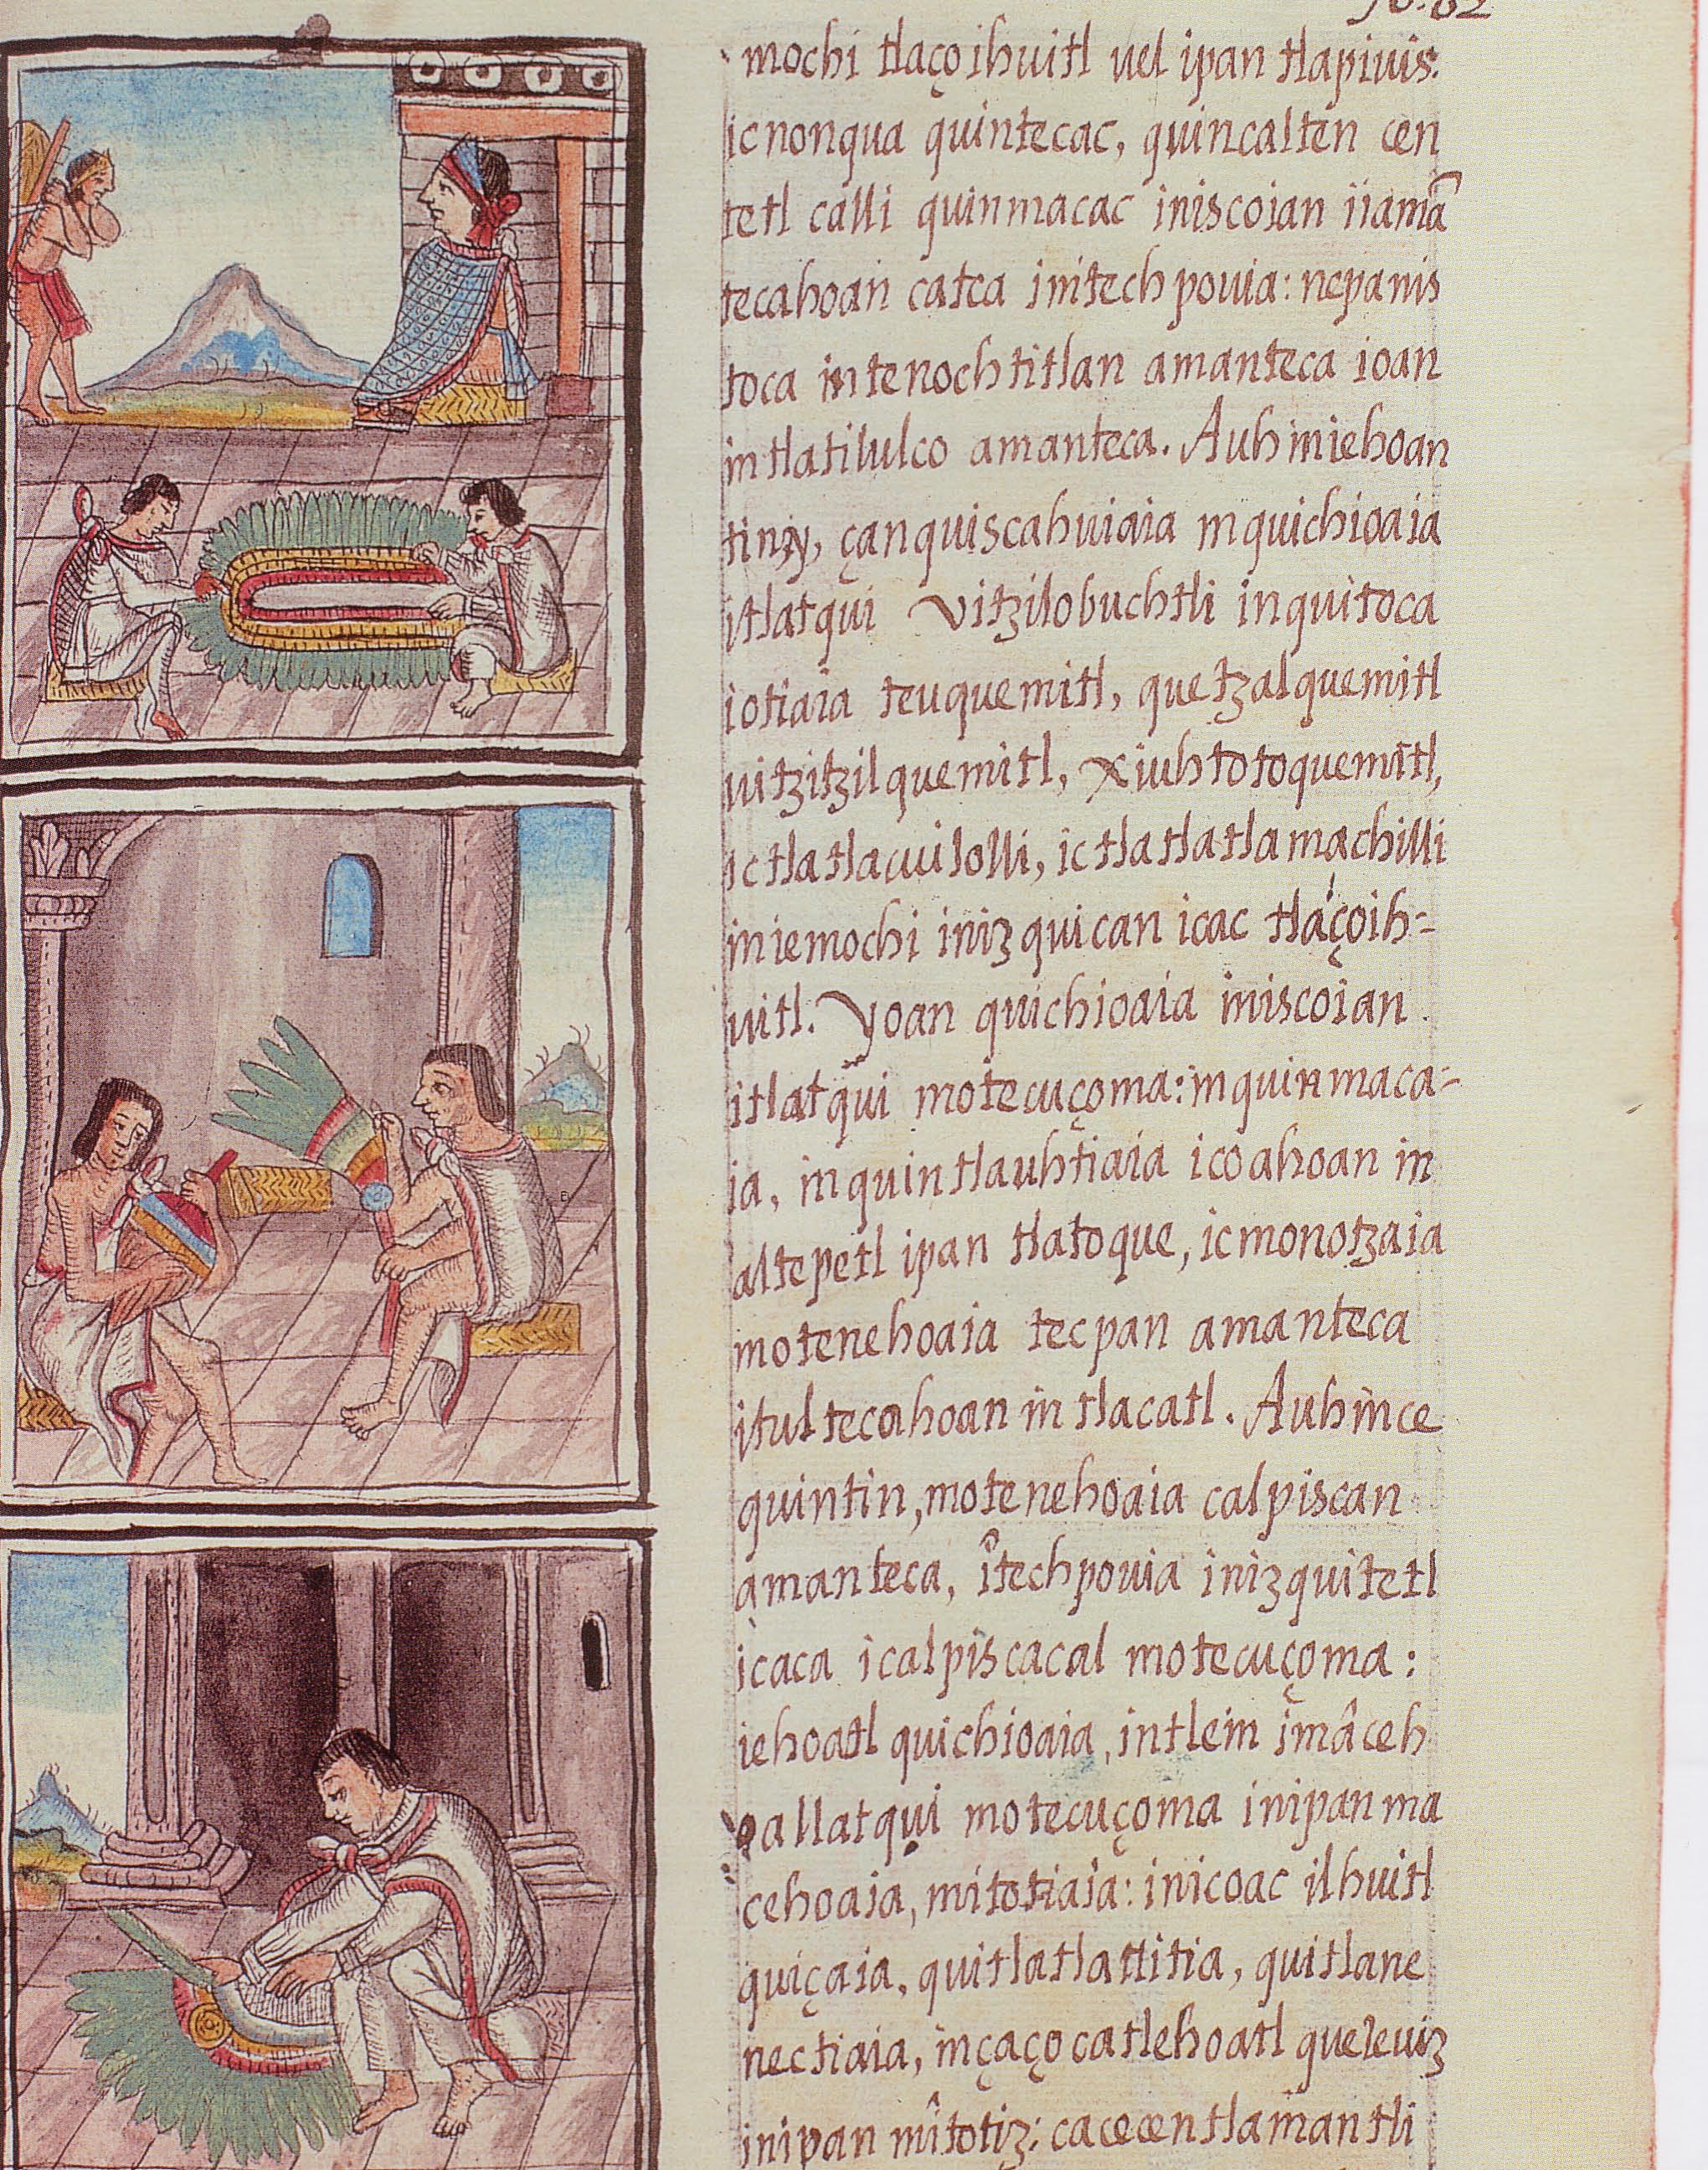 fo. 62
mochi tlaçoihuitl uel ipan tlapiuis.
ic nonqua quintecac, quincalten cen
tetl calli quinmacac iniscoian iiamã
tecahoan catca initech pouia: nepanis
toca in tenochtitlan amanteca ioan
in tlatilulco amanteca. Auh iniehoan
tinẏ, çan quiscahuiaia in quichioaia
itlatqui Vitzilobuchtli in quitoca
iotiaia teuquemitl, quetzalquemitl
uitzitzilquemitl, Xiuhtotoquemitl,
ic tlatlacuilolli, ic tlatlatlamachilli
in ie mochi inizquican icac tlaçoih-
uitl. Yoan quichioaia iniscoian
itlatqui motecuçoma: in quinmaca-
ia, in quintlauhtiaia icoahoan in
altepetl ipan tlatoque, ic monotzaia
motenehoaia tecpan amanteca
itultecahoan in tlacatl. Auh in ce
quintin, motenehoaia calpiscan
amanteca, îtech pouia inizquitetl
icaca icalpiscacal motecuçoma:
iehoatl quichioaia, in tlein imâceh
oallatqui motecuçoma inipan ma
cehoaia, mitotiaia: inicoac ilhuitl
quiçaia, quitlatlattitia, quitlane
nectiaia, in çaço catlehoatl queleuiz
inipan mîtotiz: ca cecentlamantli